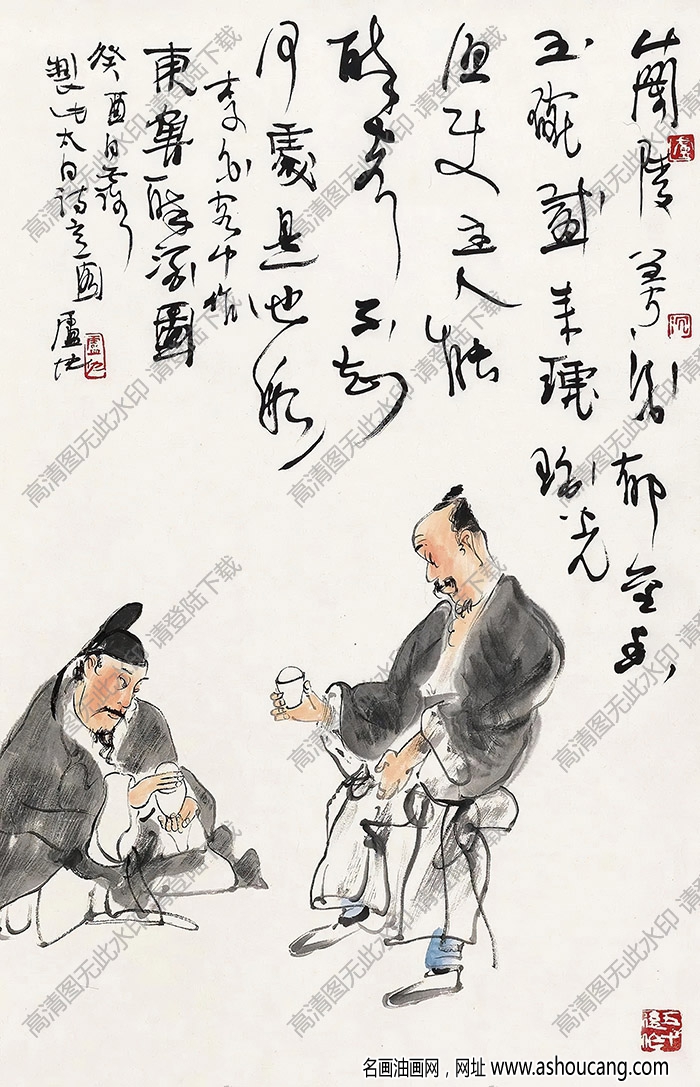 蘭陵美酒郁金香
玉碗盛来琥珀光
但使主人能
醉客不知
何處是他鄉
李白客中作
東魯醉圖
癸酉白露
製此太白詩意圖 盧沉
盧沉
高清图无此水印 请登陆下载
名画油画网，网址 www.ashoucang.com